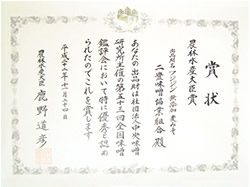 農林水産大臣賞
賞状
出品財名フンドーキン無添加麦みそ
二豊味噌協業組合殿
あなたの出品財は社団法人中央味噌
研究所主催の第五十三回全国味噌
鑑評会において特に優秀と認め
られたのでこれを賞します
平成二十二年十一月二十四日
農林水産大臣 鹿野道彦